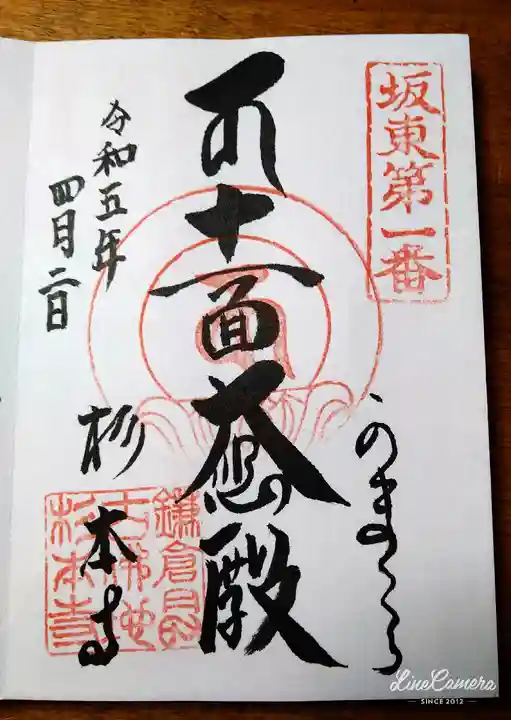 坂東第一番
かまくら
十一面大悲殿
杉本寺
令和五年
四月二日
鎌倉最
古佛地
杉本寺
LineCamera
SINCE 2012